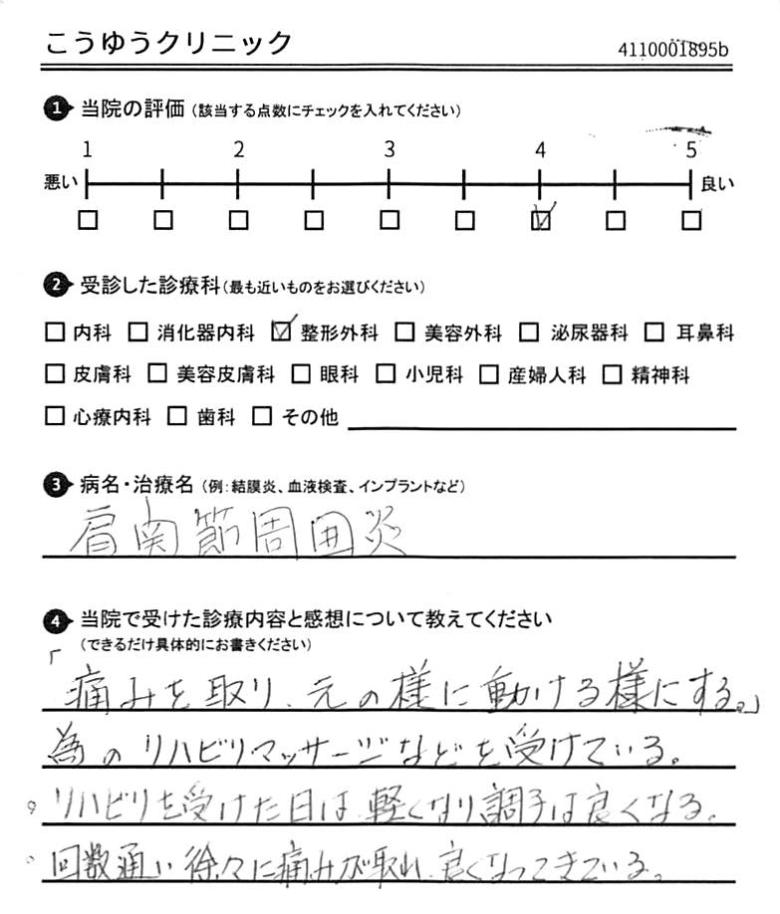 こうゆうクリニック
4110001895b
1 当院の評価（該当する点数にチェックを入れてください）
1 2 3 4 5
悪い 良い
2 受診した診療科（最も近いものをお選びください）
内科 消化器内科 整形外科 美容外科 泌尿器科 耳鼻科
皮膚科 美容皮膚科 眼科 小児科 産婦人科 精神科
心療内科 歯科 その他
3 病名・治療名（例：結膜炎、血液検査、インプラントなど）
肩関節周囲炎
4 当院で受けた診療内容と感想について教えてください
（できるだけ具体的にお書きください）
「痛みを取り、元の様に動ける様にする。」
為のリハビリマッサージなどを受けている。
リハビリを受けた日は軽くなり調子は良くなる。
回数通い徐々に痛みが取れ、良くなってきている。